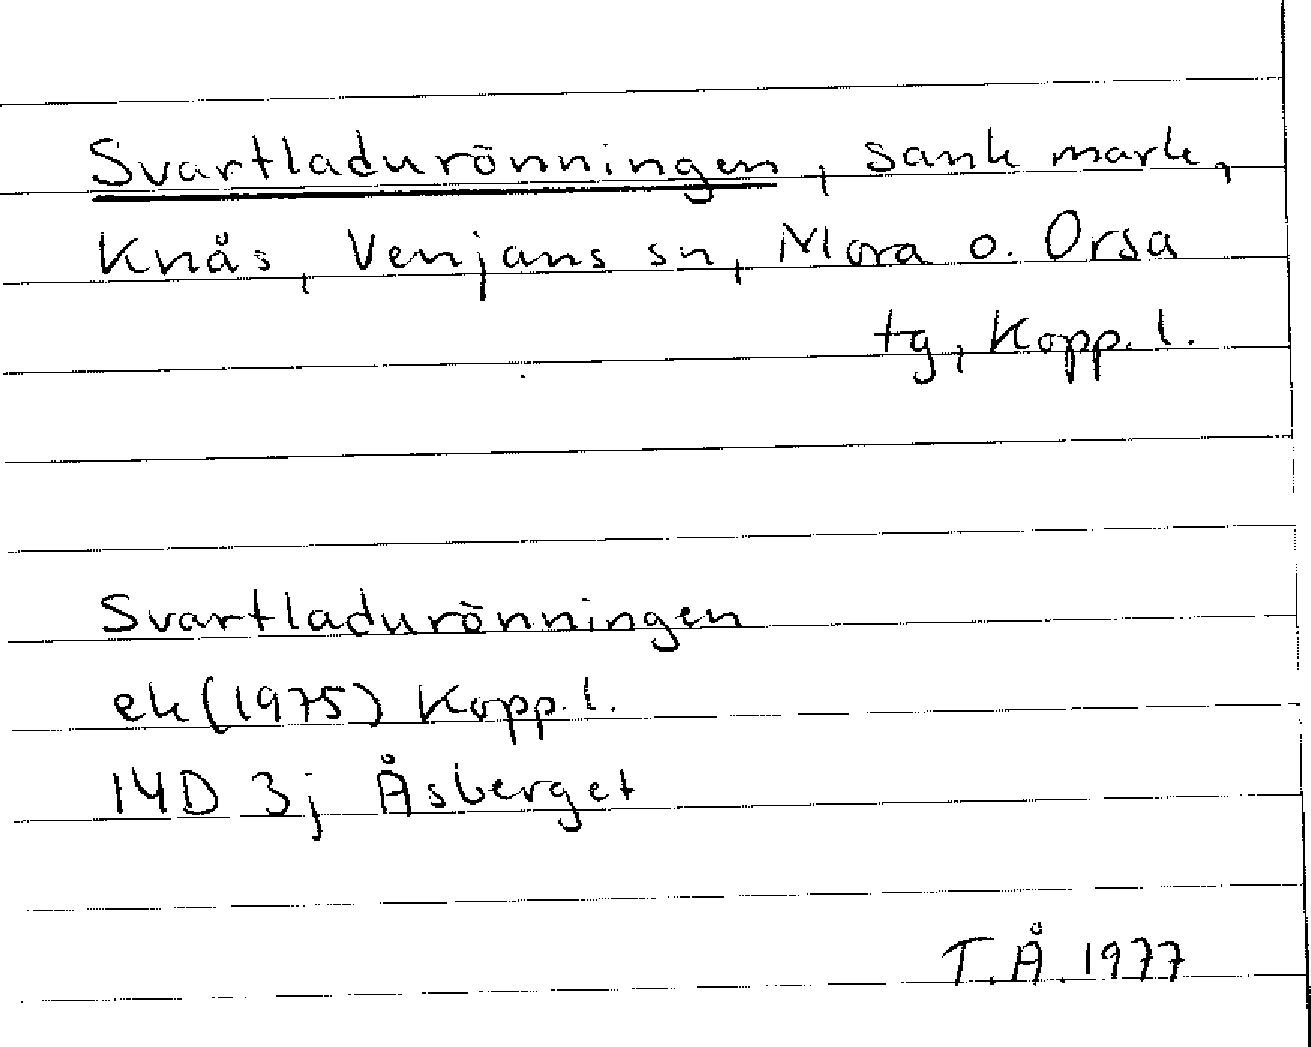 Svartladurönningen, sank mark,
Knås, Venjans sn, Mora o. Orsa
tg, Kopp. l.
Svartladurönningen
ek (1975) Kopp. l.
14D 3j Åsberget
T.Å. 1977